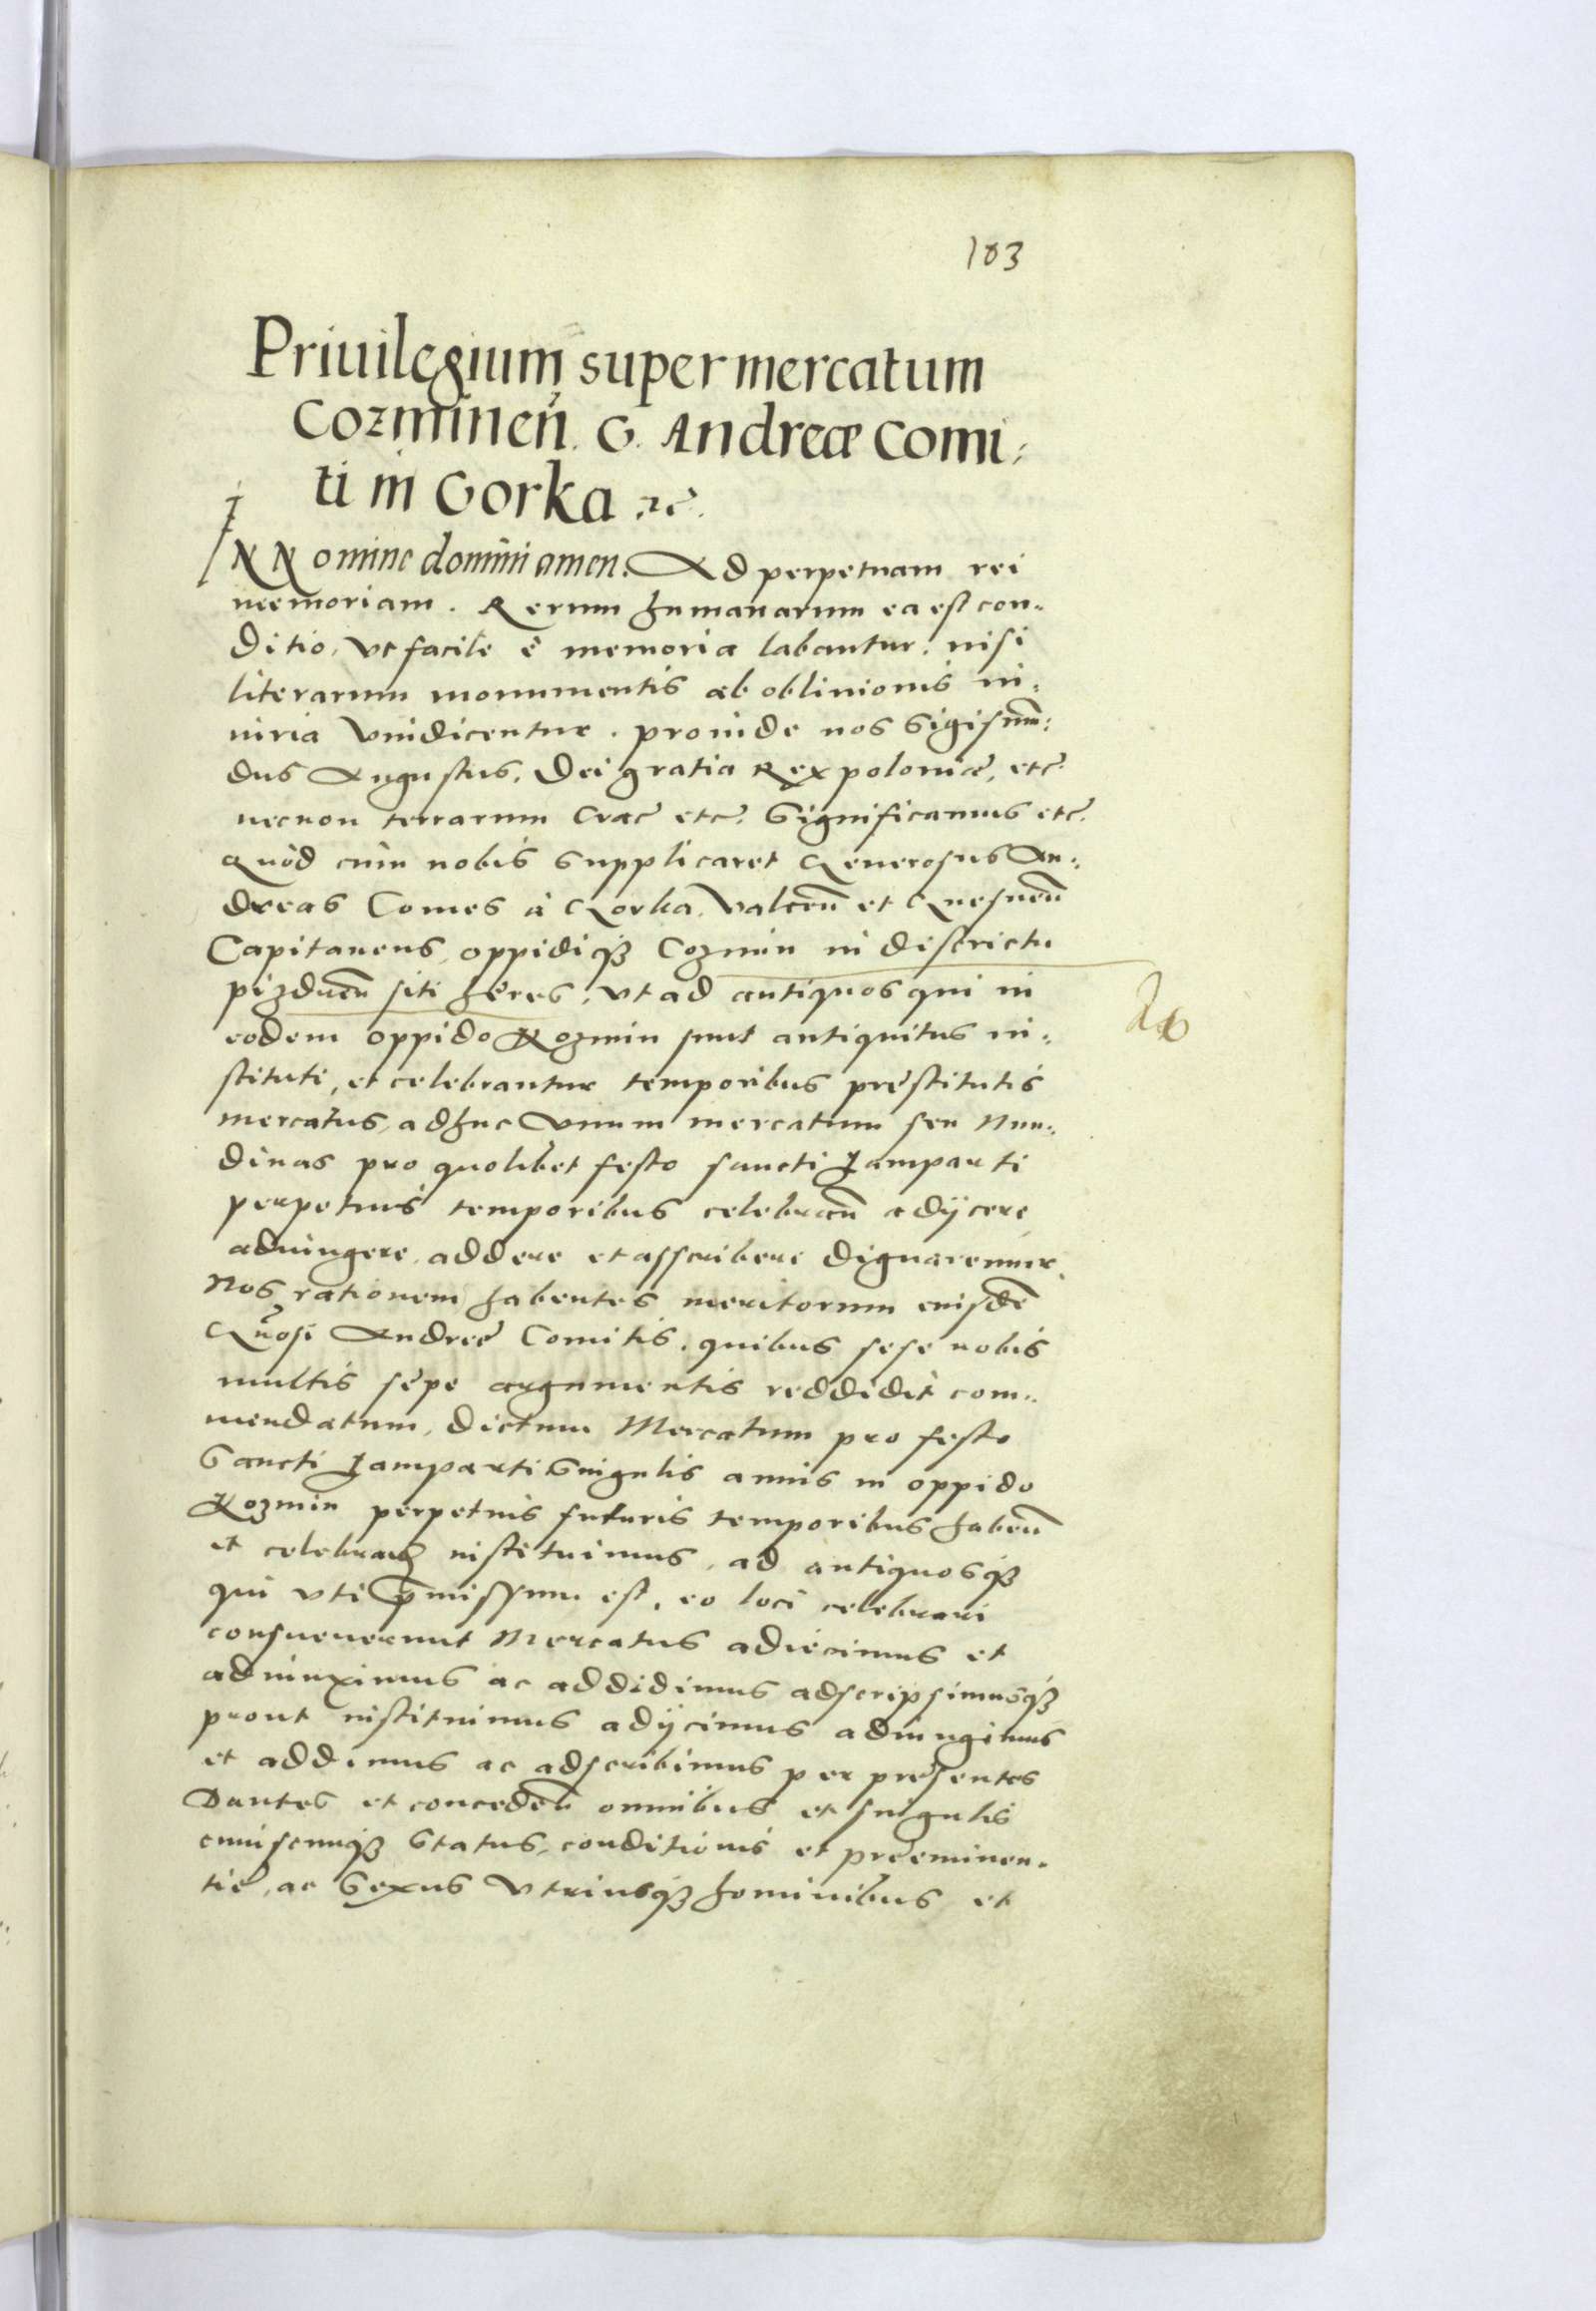 103
Priuilegium super mercatum
Cozminen̄. G. Andreæ Comi:
ti in Gorka ꝛc̄.
IN Nomine domini amen. Ad perpetuam rei
memoriam. Rerum humanarum ea est con:
ditio, vt facile è memoria labantur, nisi
literarum monumentis ab obliuionis in:
iuria vindicentur. proinde nos Sigismū:
dus Augustus, Dei gratia Rex poloniæ, etc̄
necnon terrarum Crac̄ etc̄. Significamus etc̄.
Quòd cùm nobis supplicaret Generosus An:
dreas Comes à Gorka, Valcen̄ et Gnesnen̄
Capitaneus, oppidiqꝫ Cozmin in districtu
pizdren̄ siti hęres, vt ad antiquos qui in
eodem oppido Kozmin sunt antiquitus in:
stituti, et celebrantur temporibus pręstitutis
mercatus, adhuc vnum mercatum seu Nun:
dinas pro quolibet festo sancti Lamparti
perpetuis temporibus celebran̄ adijcere
adiungere, addere et asscribere dignaremur.
Nos rationem habentes meritorum eiusdē
Gn̄osi Andreę Comitis, quibus sese nobis
multis sępe argumentis reddidit com:
mendatum, dictum Mercatum pro festo
Sancti Lamparti singulis annis in oppido
Kozmin perpetuis futuris temporibus haben̄
et celebran̄ instituimus, ad antiquosqꝫ
qui vti p̄missum est, eo loci celebrari
consueuerunt Mercatus adiecimus et
adiunximus ac addidimus adscripsimusqꝫ
prout instituimus adijcimus adiungimus
et addimus ac adscribimus per pręsentes
Dantes et conceden̄ omnibus et singulis
cuiuscunqꝫ status, conditionis et pręeminen:
tię, ac sexus vtriusqꝫ hominibus et